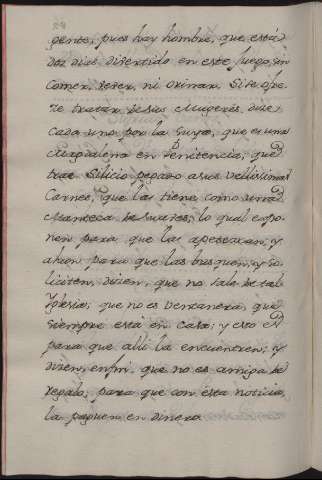 gente, pues hay hombre, que está
dos dias divertido en este juego, sin
comer, vever, ni orinar. Si se ofre-
ze tratar de sus Mugeres dize
cada uno por la suya, que es una
Magdalena en Penitencia; que
trae Silicio pegado a sus vellissimas
Carnes, que las tiene como una
Manteca de Suazes; lo qual expo-
nen para que las apetezcan; y
ahun para que las busquen, y so-
liciten, dizen, que no sale de tal
Yglesia; que no es ventanera, que
siempre está en casa; y esto es
para que alli la encuentren; y
dizen, enfin, que no es amiga de
regalo; para que con ésta noticia,
la paguen en dinero